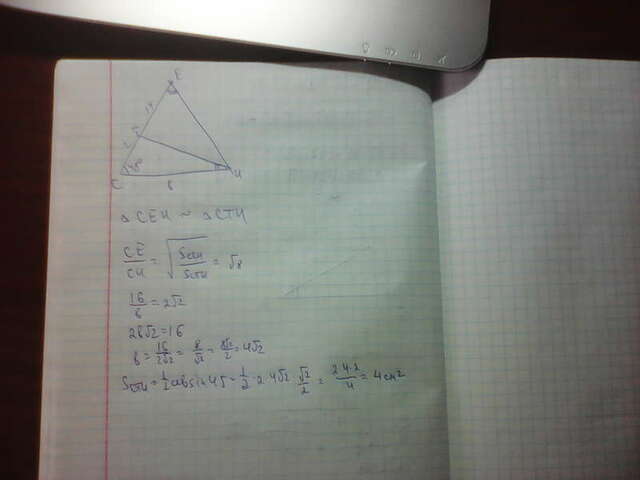 E
14
T
2
45°
C
в
H
△CEH ~ △CTH
CE/CH = √(SCEH/SCTH) = √8
16/в = 2√2
2в√2 = 16
в = 16/2√2 = 8/√2 = 8√2/2 = 4√2
SCTH = 1/2 ab sin 45 = 1/2 · 2 · 4√2 · √2/2 = 2·4·2/4 = 4 см²